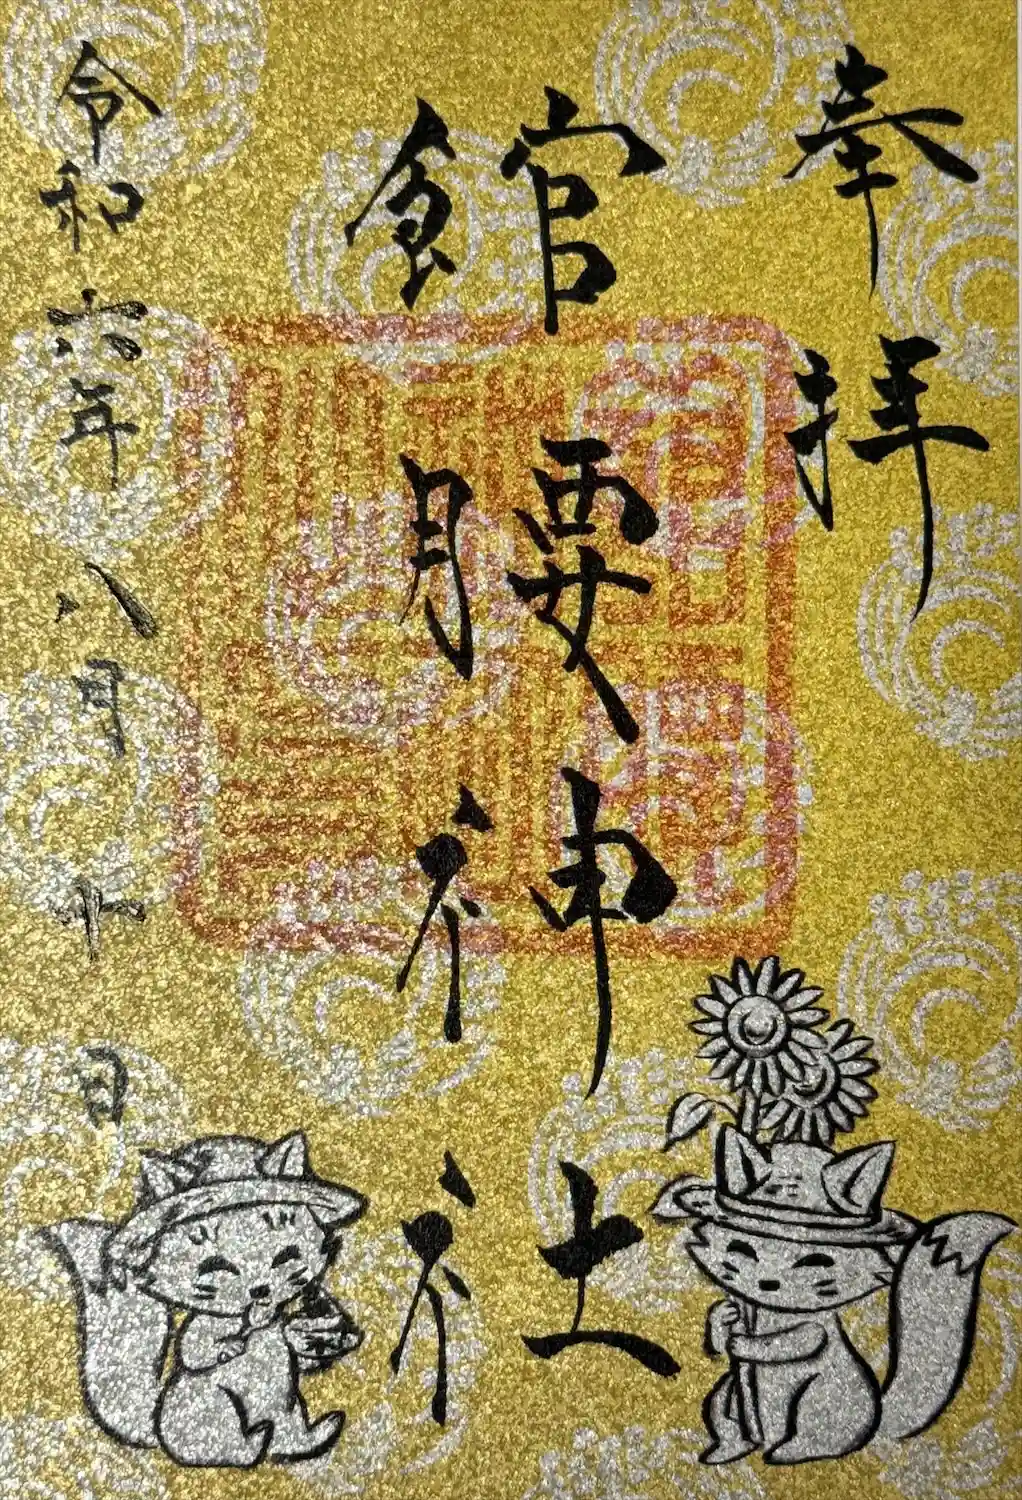 奉拝
館腰神社
令和六年八月十日